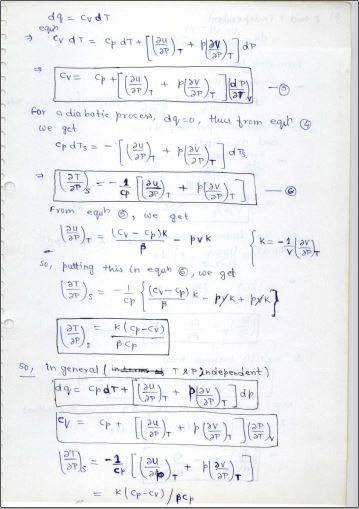 dq = CvdT
equn
⇒ Cv dT = Cp dT + [(∂u/∂P)T + P(∂V/∂P)T] dP
⇒ Cv = Cp + [(∂u/∂P)T + P(∂V/∂P)T] (∂P/∂T)V — ⑤
For adiabatic process, dq=0, thus from equn ④
we get
Cp dTs = -[(∂u/∂P)T + P(∂V/∂P)T] dPs
⇒ (∂T/∂P)S = -1/Cp [(∂u/∂P)T + P(∂V/∂P)T] — ⑥
From equn ⑤, we get
(∂u/∂P)T = (Cv - Cp)K/β - PVK { K = -1/V (∂V/∂P)T
So, putting this in equn ⑥, we get
(∂T/∂P)S = -1/Cp { (Cv - Cp)/β K - PVK + PVK }
(∂T/∂P)S = K(Cp-Cv)/βCp
So, in general (in terms of T & P independent)
dq = CpdT + [(∂u/∂P)T + P(∂V/∂P)T] dP
Cv = Cp + [(∂u/∂P)T + P(∂V/∂P)T] (∂P/∂T)V
(∂T/∂P)S = -1/Cp [(∂u/∂P)T + P(∂V/∂P)T]
= K(Cp-Cv)/βCp